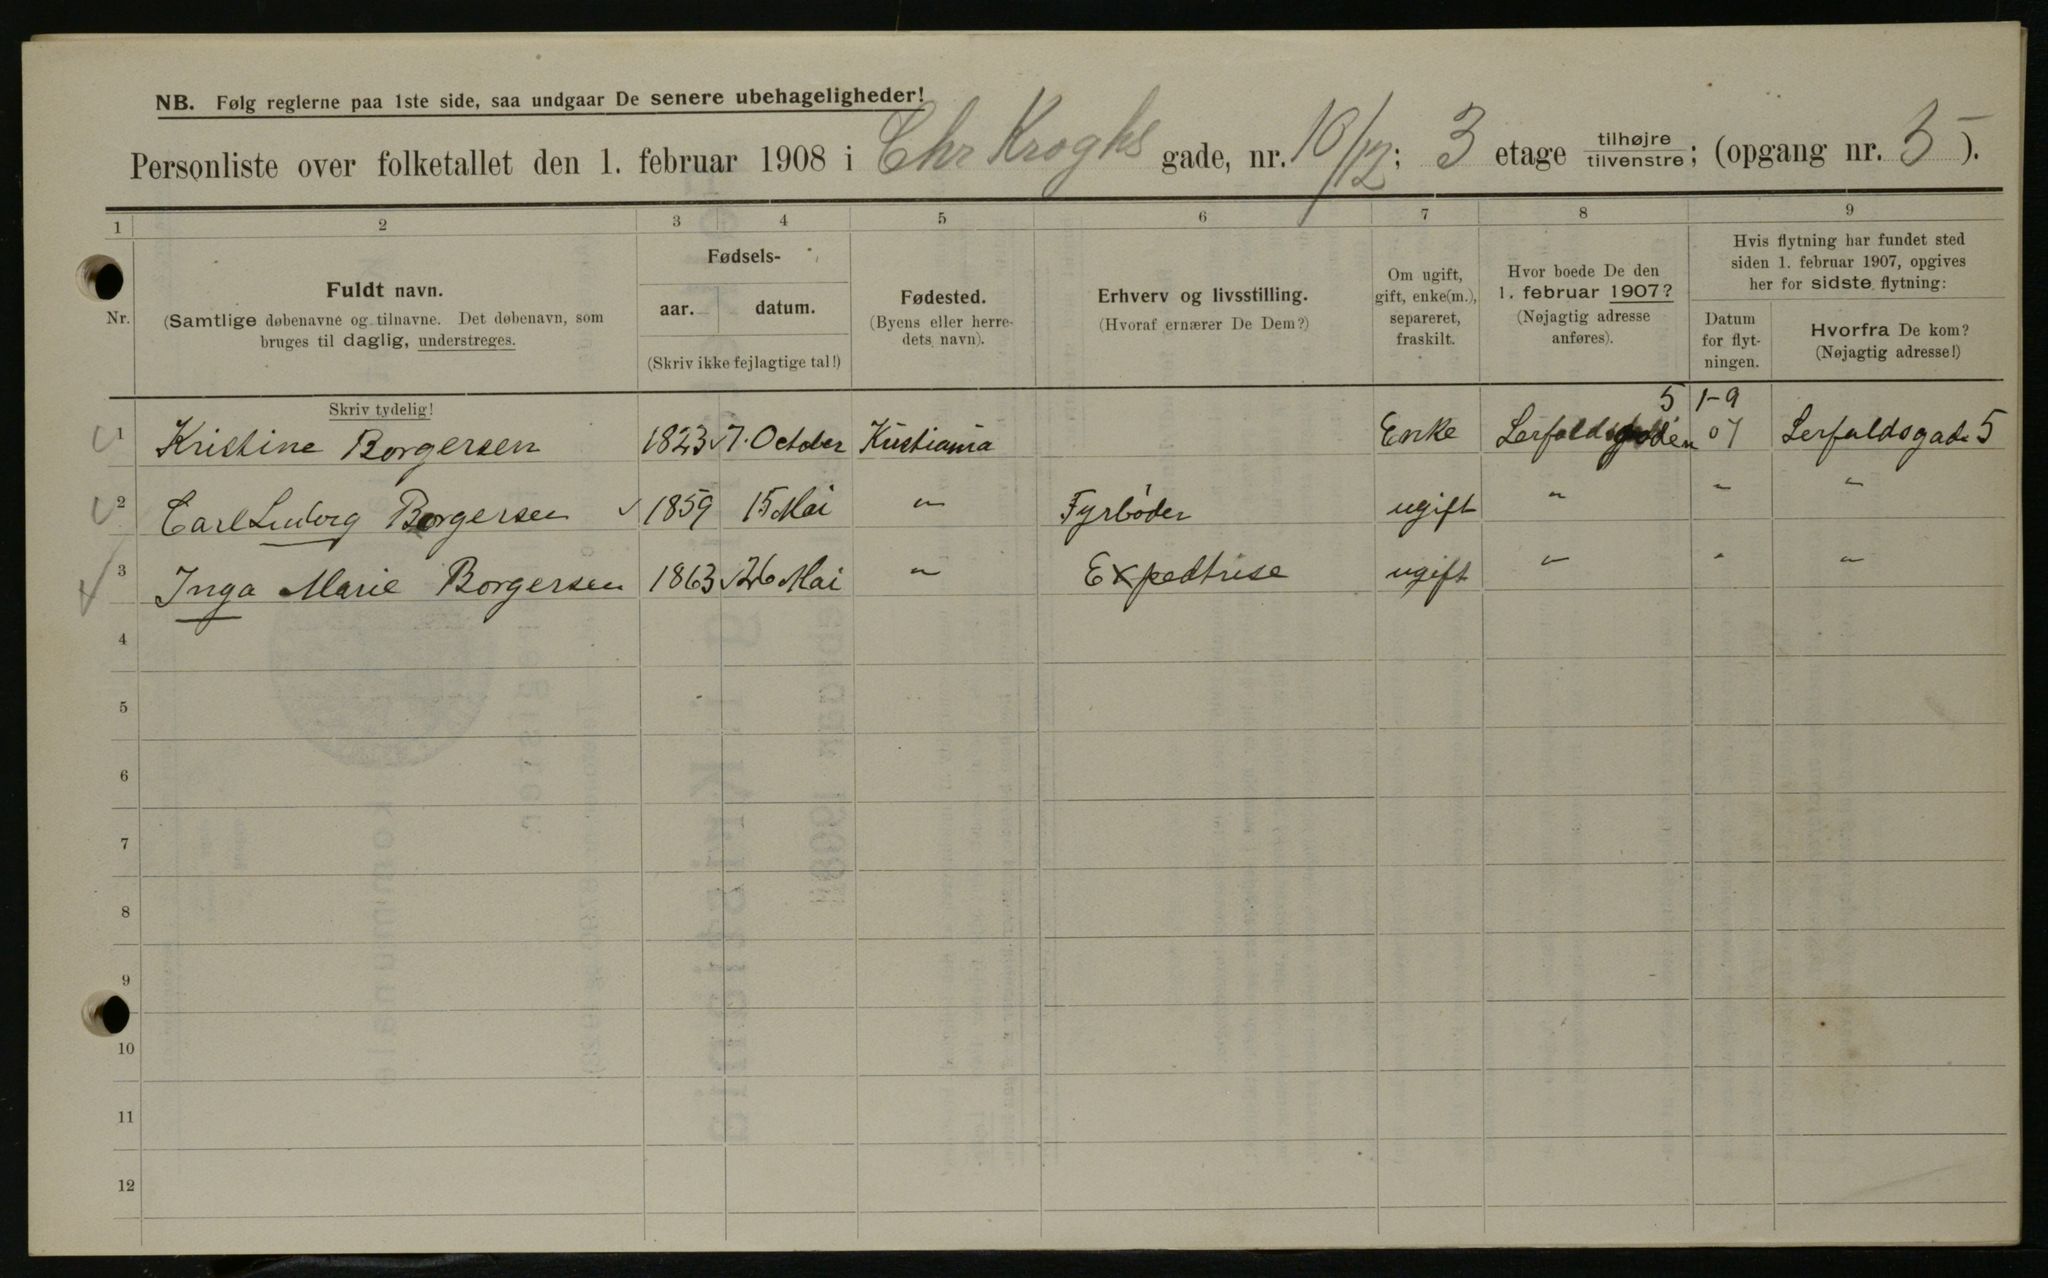 NB. Følg reglerne paa 1ste side, saa undgaar De senere ubehageligheder!
Personliste over folketallet den 1. februar 1908 i Chr Kroghs gade, nr. 10/12; 3 etage tilhøjre/tilvenstre; (opgang nr. 5).
1 2 3 4 5 6 7 8 9
Nr.
Fuldt navn.
(Samtlige døbenavne og tilnavne. Det døbenavn, som
bruges til daglig, understreges.
Skriv tydelig!
Fødsels-
aar. datum.
(Skriv ikke fejlagtige tal!)
Fødested.
(Byens eller herre-
dets navn).
Erhverv og livsstilling.
(Hvoraf ernærer De Dem?)
Om ugift,
gift, enke(m.),
separeret,
fraskilt.
Hvor boede De den
1. februar 1907?
(Nøjagtig adresse
anføres).
Hvis flytning har fundet sted
siden 1. februar 1907, opgives
her for sidste flytning:
Datum
for flyt-
ningen.
Hvorfra De kom?
(Nøjagtig adresse!)
5 1-9
1 Kristine Borgersen 1823 7. October Kristiania Enke 07 Lerfaldsgade 5
2 Carl Ludvig Borgersen 1859 15 Mai " Fyrbøder ugift " " "
3 Inga Marie Borgersen 1863 26 Mai " Expedtrise ugift " " "
4
5
6
7
8
9
10
11
12